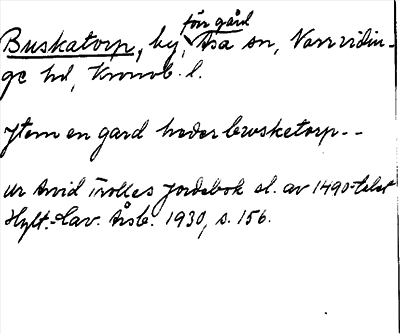 förr gård
Buskatorp, by, Asa sn, Norrvidin-
ge hd, Kronob. l.
Jtem en gard heder bwsketorp--
ur Arvid Trolles Jordebok sl. av 1490-talet
Hylt.-Cav. Årsb. 1930, s. 156.